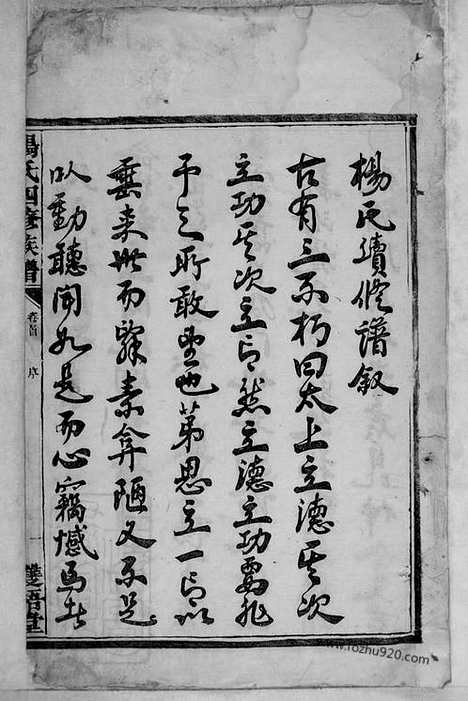 楊氏續修譜叙
古有三不朽曰太上立德其次
立功其次立言然立德立功要非
予之所敢望也第思立一言以
垂来世而踈素弇陋又不足
以動聽聞如是而心竊憾焉者
楊氏四修族譜
卷首
序
一
雙語堂
www.rozhu920.com